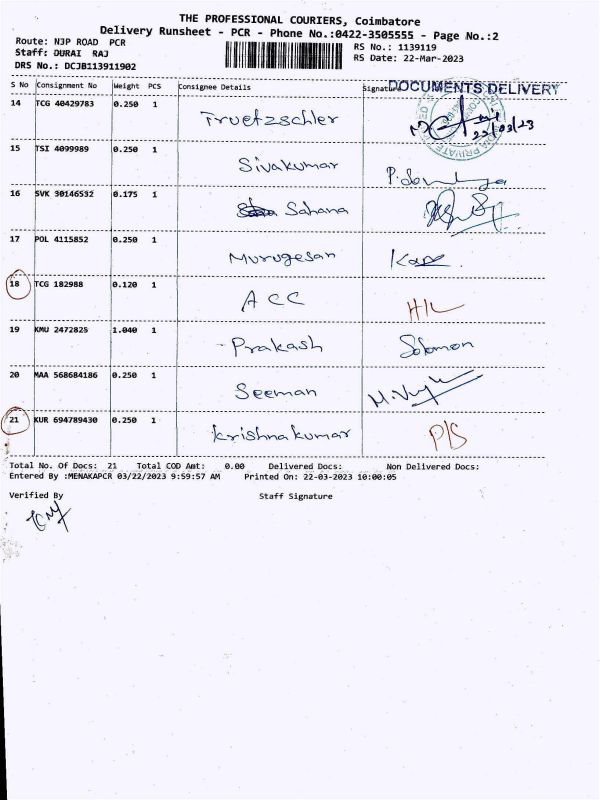 THE PROFESSIONAL COURIERS, Coimbatore
Delivery Runsheet - PCR - Phone No.:0422-3505555 - Page No.:2
Route: N3P ROAD PCR
Staff: DURAI RAJ
DRS No.: DCJB113911902
RS No.: 1139119
RS Date: 22-Mar-2023
S No Consignment No Weight PCS Consignee Details Signature
DOCUMENTS DELIVERY
14 TCG 40429783 0.250 1 Truetzschler 22/03/23
15 TSI 4099989 0.250 1 Sivakumar
16 SVK 30146532 0.175 1 Sahana
17 POL 4115852 0.250 1 Murugesan
18 TCG 182988 0.120 1 ACC H/L
19 KMU 2472825 1.040 1 Prakash Solomon
20 MAA 568684186 0.250 1 Seeman
21 KUR 694789430 0.250 1 Krishnakumar P/S
Total No. Of Docs: 21 Total COD Amt: 0.00 Delivered Docs: Non Delivered Docs:
Entered By :MENAKAPCR 03/22/2023 9:59:57 AM Printed On: 22-03-2023 10:00:05
Verified By Staff Signature